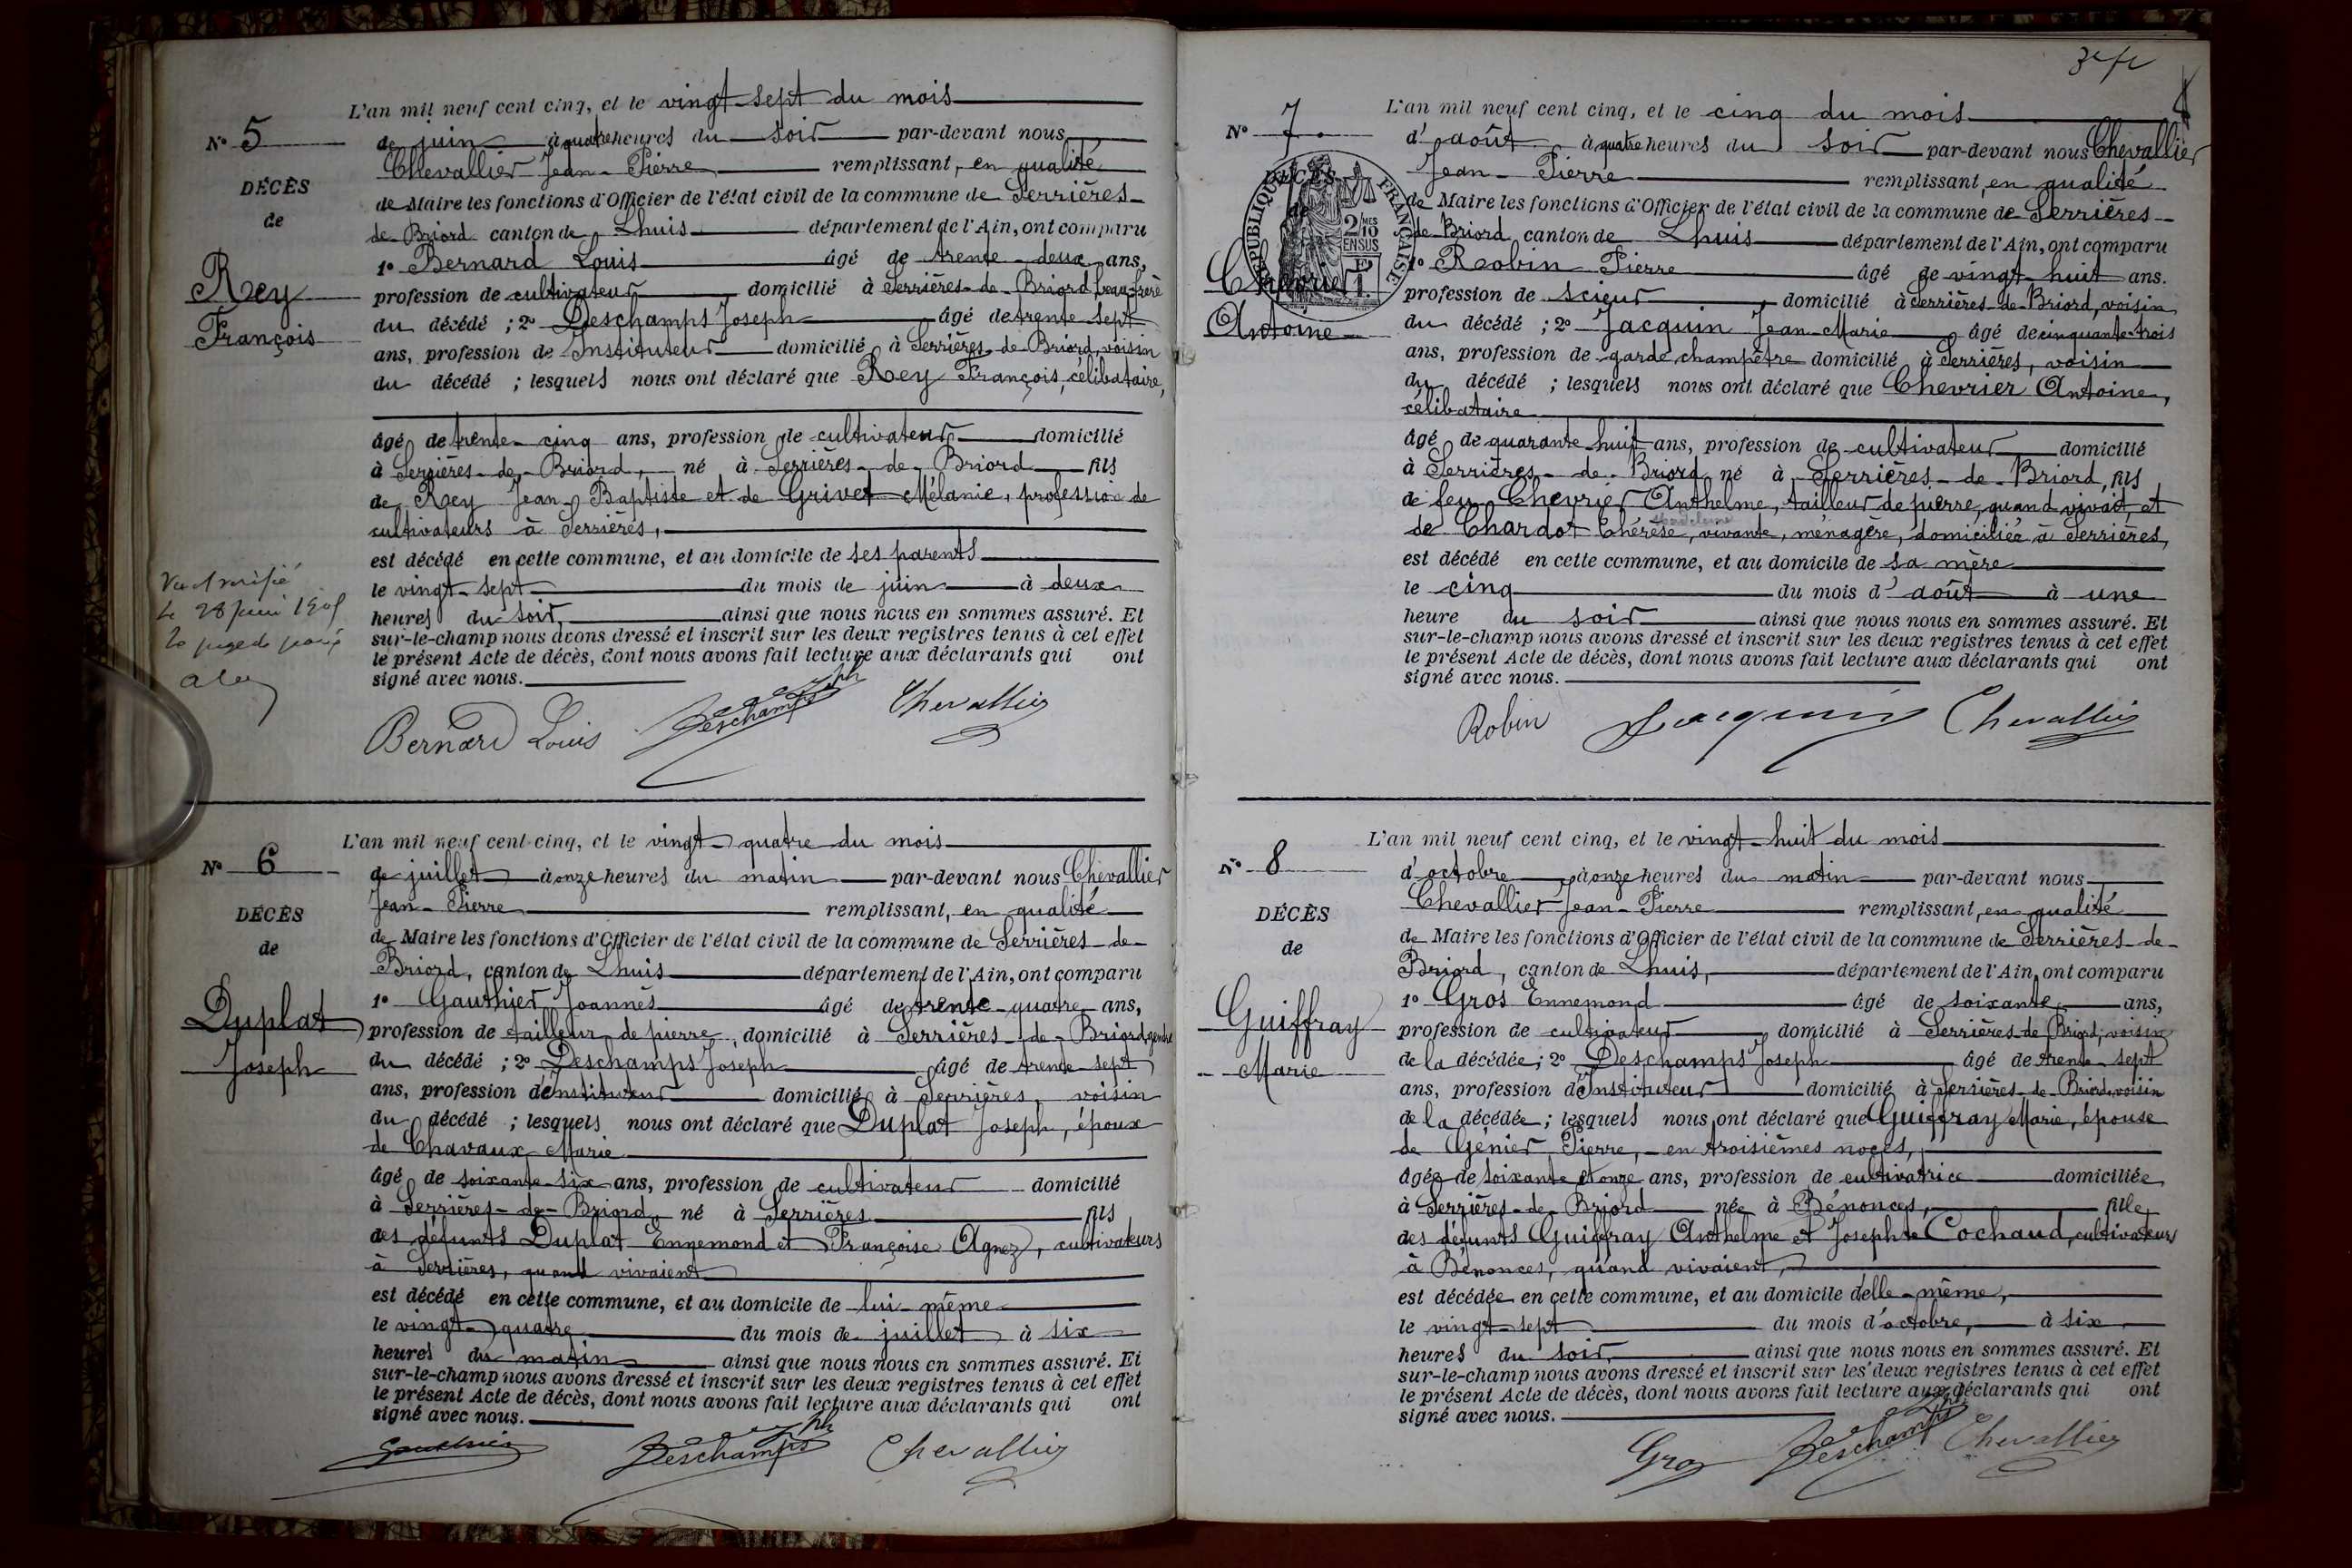 L'an mil neuf cent cinq, et le vingt-sept du mois
N° 5
de juin à quatre heures du soir par-devant nous
Chevallier Jean-Pierre remplissant, en qualité
DÉCÈS
de Maire les fonctions d'Officier de l'état civil de la commune de Serrières-
de
de Briord canton de Lhuis département de l'Ain, ont comparu
1° Bernard Louis âgé de trente-deux ans,
Rey
profession de cultivateur domicilié à Serrières-de-Briord, beau-frère
François
du décédé ; 2° Deschamps Joseph âgé de trente-sept
ans, profession de Instituteur domicilié à Serrières-de-Briord, voisin
du décédé ; lesquels nous ont déclaré que Rey François, célibataire,
âgé de trente-cinq ans, profession de cultivateur domicilié
à Serrières-de-Briord, né à Serrières-de-Briord fils
de Rey Jean-Baptiste et de Grivet Mélanie, profession de
cultivateurs à Serrières,
est décédé en cette commune, et au domicile de ses parents
le vingt-sept du mois de juin à deux
heures du soir, ainsi que nous nous en sommes assuré. Et
sur-le-champ nous avons dressé et inscrit sur les deux registres tenus à cet effet
le présent Acte de décès, dont nous avons fait lecture aux déclarants qui ont
signé avec nous.
Vu et vérifié
Le 28 juin 1905
Le juge de paix
Bernard Louis Deschamps Joseph Chevallier
L'an mil neuf cent cinq, et le vingt-quatre du mois
N° 6
de juillet à onze heures du matin par-devant nous Chevallier
Jean-Pierre remplissant, en qualité
DÉCÈS
de Maire les fonctions d'Officier de l'état civil de la commune de Serrières-de-
de
Briord, canton de Lhuis département de l'Ain, ont comparu
1° Gauthier Joannès âgé de trente-quatre ans,
Duplat
profession de tailleur de pierre, domicilié à Serrières-de-Briord, gendre
Joseph
du décédé ; 2° Deschamps Joseph âgé de trente-sept
ans, profession d'Instituteur domicilié à Serrières, voisin
du décédé ; lesquels nous ont déclaré que Duplat Joseph, époux
de Chavaux Marie
âgé de soixante-six ans, profession de cultivateur domicilié
à Serrières-de-Briord, né à Serrières fils
des défunts Duplat Ennemond et Françoise Agnez, cultivateurs
à Serrières, quand vivaient
est décédé en cette commune, et au domicile de lui-même
le vingt-quatre du mois de juillet à six
heures du matin ainsi que nous nous en sommes assuré. Et
sur-le-champ nous avons dressé et inscrit sur les deux registres tenus à cet effet
le présent Acte de décès, dont nous avons fait lecture aux déclarants qui ont
signé avec nous.
Gauthier Deschamps Joseph Chevallier
L'an mil neuf cent cinq, et le cinq du mois
N° 7.
d'août à quatre heures du soir par-devant nous Chevallier
Jean-Pierre remplissant, en qualité
DÉCÈS
RÉPUBLIQUE FRANÇAISE
2/10MES
EN SUS
de Maire les fonctions d'Officier de l'état civil de la commune de Serrières-
de
de Briord canton de Lhuis département de l'Ain, ont comparu
Chevrier
1° Robin Pierre âgé de vingt-huit ans.
profession de scieur, domicilié à Serrières-de-Briord, voisin
Antoine
du décédé ; 2° Jacquin Jean-Marie âgé de cinquante-trois
ans, profession de garde champêtre domicilié à Serrières, voisin
du décédé ; lesquels nous ont déclaré que Chevrier Antoine,
célibataire
âgé de quarante-huit ans, profession de cultivateur domicilié
à Serrières-de-Briord né à Serrières-de-Briord, fils
de feu Chevrier Anthelme, tailleur de pierre, quand vivait, et
de Chardot Thérèse, vivante, ménagère, domiciliée à Serrières,
est décédé en cette commune, et au domicile de sa mère
le cinq du mois d'août à une
heure du soir ainsi que nous nous en sommes assuré. Et
sur-le-champ nous avons dressé et inscrit sur les deux registres tenus à cet effet
le présent Acte de décès, dont nous avons fait lecture aux déclarants qui ont
signé avec nous.
Robin Jacquin Chevallier
L'an mil neuf cent cinq, et le vingt-huit du mois
N° 8
d'octobre à onze heures du matin par-devant nous
Chevallier Jean-Pierre remplissant, en qualité
DÉCÈS
de Maire les fonctions d'Officier de l'état civil de la commune de Serrières-de-
de
Briord, canton de Lhuis, département de l'Ain, ont comparu
1° Gros Ennemond âgé de soixante ans,
Guiffray
profession de cultivateur domicilié à Serrières-de-Briord, voisin
de la décédée ; 2° Deschamps Joseph âgé de trente-sept
Marie
ans, profession d'Instituteur domicilié à Serrières-de-Briord, voisin
de la décédée ; lesquels nous ont déclaré que Guiffray Marie, épouse
de Génier Pierre, en troisièmes noces,
âgée de soixante et onze ans, profession de cultivatrice domiciliée
à Serrières-de-Briord née à Bénonces, fille
des défunts Guiffray Anthelme et Josephte Cochaud, cultivateurs
à Bénonces, quand vivaient,
est décédée en cette commune, et au domicile d'elle-même,
le vingt-sept du mois d'octobre, à six
heures du soir, ainsi que nous nous en sommes assuré. Et
sur-le-champ nous avons dressé et inscrit sur les deux registres tenus à cet effet
le présent Acte de décès, dont nous avons fait lecture aux déclarants qui ont
signé avec nous.
Gros Deschamps Joseph Chevallier